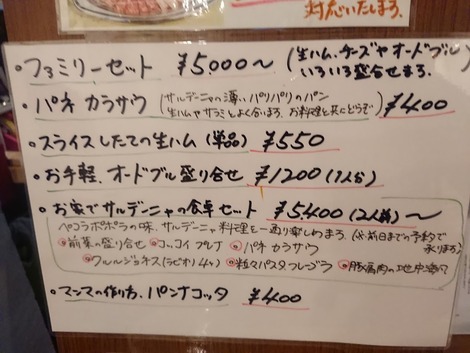 対応いたします。
・ファミリーセット ¥5.000〜 (生ハム、チーズやオードブル
いろいろ盛合せます。
・パネ カラサウ (サルデーニャの薄い、パリパリのパン
生ハムやサラミとよく合います。お料理と共にどうぞ) ¥400
・スライスしたての生ハム (単品) ¥550
・お手軽、オードブル盛り合せ ¥1200 (1人分)
・お家でサルデーニャの食卓セット ¥5,400 (2人前) 〜
ペコラポポラの味、サルデーニャ料理を一通り楽しめます。(※前日までの予約で
承ります)
前菜の盛り合せ パネ カラサウ
クルルジョネス(ラビオリ4ヶ) 粒々パスタ フレーグラ 豚肩肉の地中海
・マンマの作り方、パンナコッタ ¥400